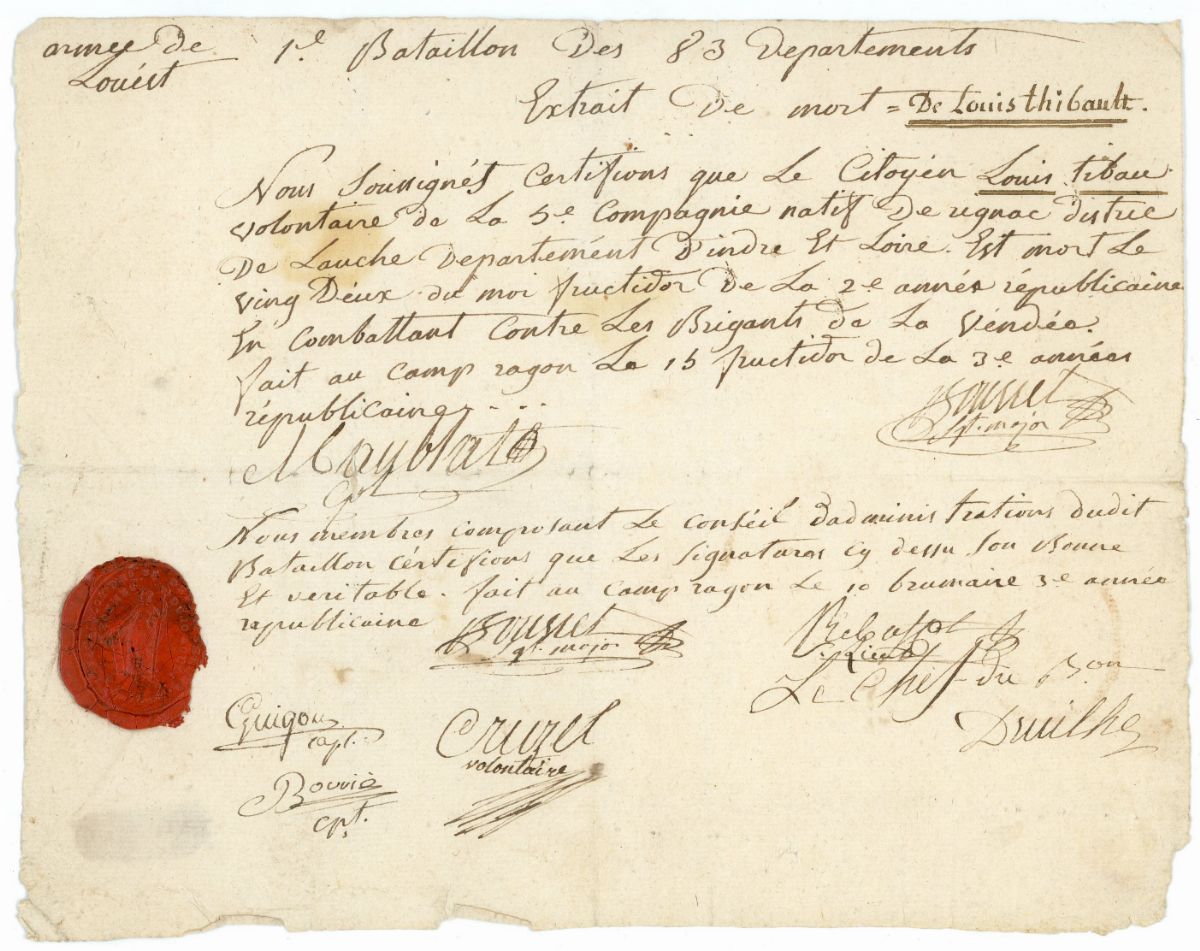 armee de
Louest
1.er Bataillon Des 83 Departements
Extrait De mort = De Louis thibault.
Nous Soussignés Certifions que Le Citoyen Louis tibau
volontaire de La 5e Compagnie natif De rignac distric
De Lauche Departemént D'indre Et Loire. Est mort Le
ving Déux du moi fructidor De La 2e année républicaine
En Combattant Contre Les Brigants de La Véndée.
fait au Camp ragon Le 15 fructidor de La 3e années
républicaine. . . .
Bousset
qt. major
Mayblat
Nous membres composant Le conséil dadministrations dudit
Bataillon cértifions que Les signatures cy dessu Son Bonne
Et veritable. fait au Camp ragon Le 10 brumaire 3e année
republicaine
Bousset
qt. major
Le Chef du Bon
Guigou
capt.
Cruzel
volontaire
Druilhe
Bouvié
cpt.